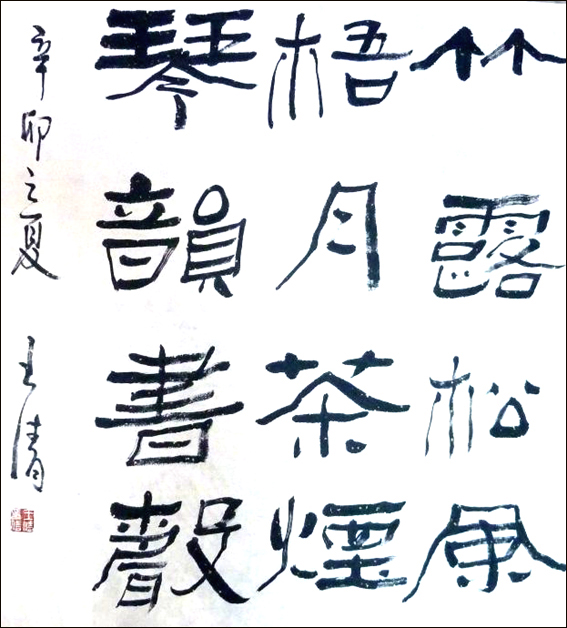 竹露松風
梧月茶煙
琴韻書聲
辛卯之夏 王清